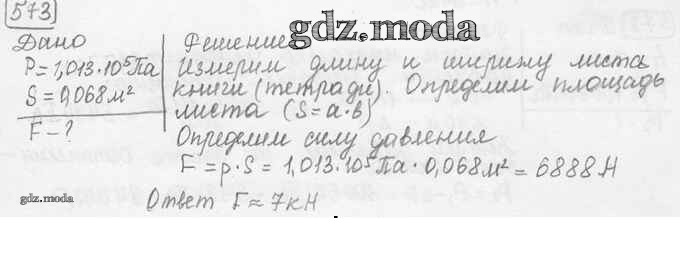 573
gdz.moda
Дано
P=1,013·10⁵Па
S=0,068м²
F-?
Решение
Измерим длину и ширину листа
книги (тетради). Определим площадь
листа (S=a·в)
Определим силу давления
F=p·S=1,013·10⁵Па·0,068м²=6888Н
gdz.moda
Ответ F≈7кН